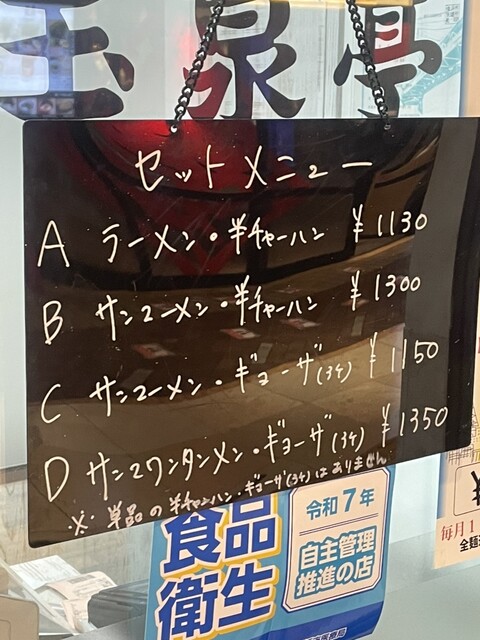 玉泉亭
セットメニュー
A ラーメン・半チャーハン ¥1130
B サンマーメン・半チャーハン ¥1300
C サンマーメン・ギョーザ(3ケ) ¥1150
D サンマワンタンメン・ギョーザ(3ケ) ¥1350
※ 単品の半チャンハン・ギョーザ(3ケ)はありません
食品
衛生
令和7年
自主管理
推進の店
毎月1